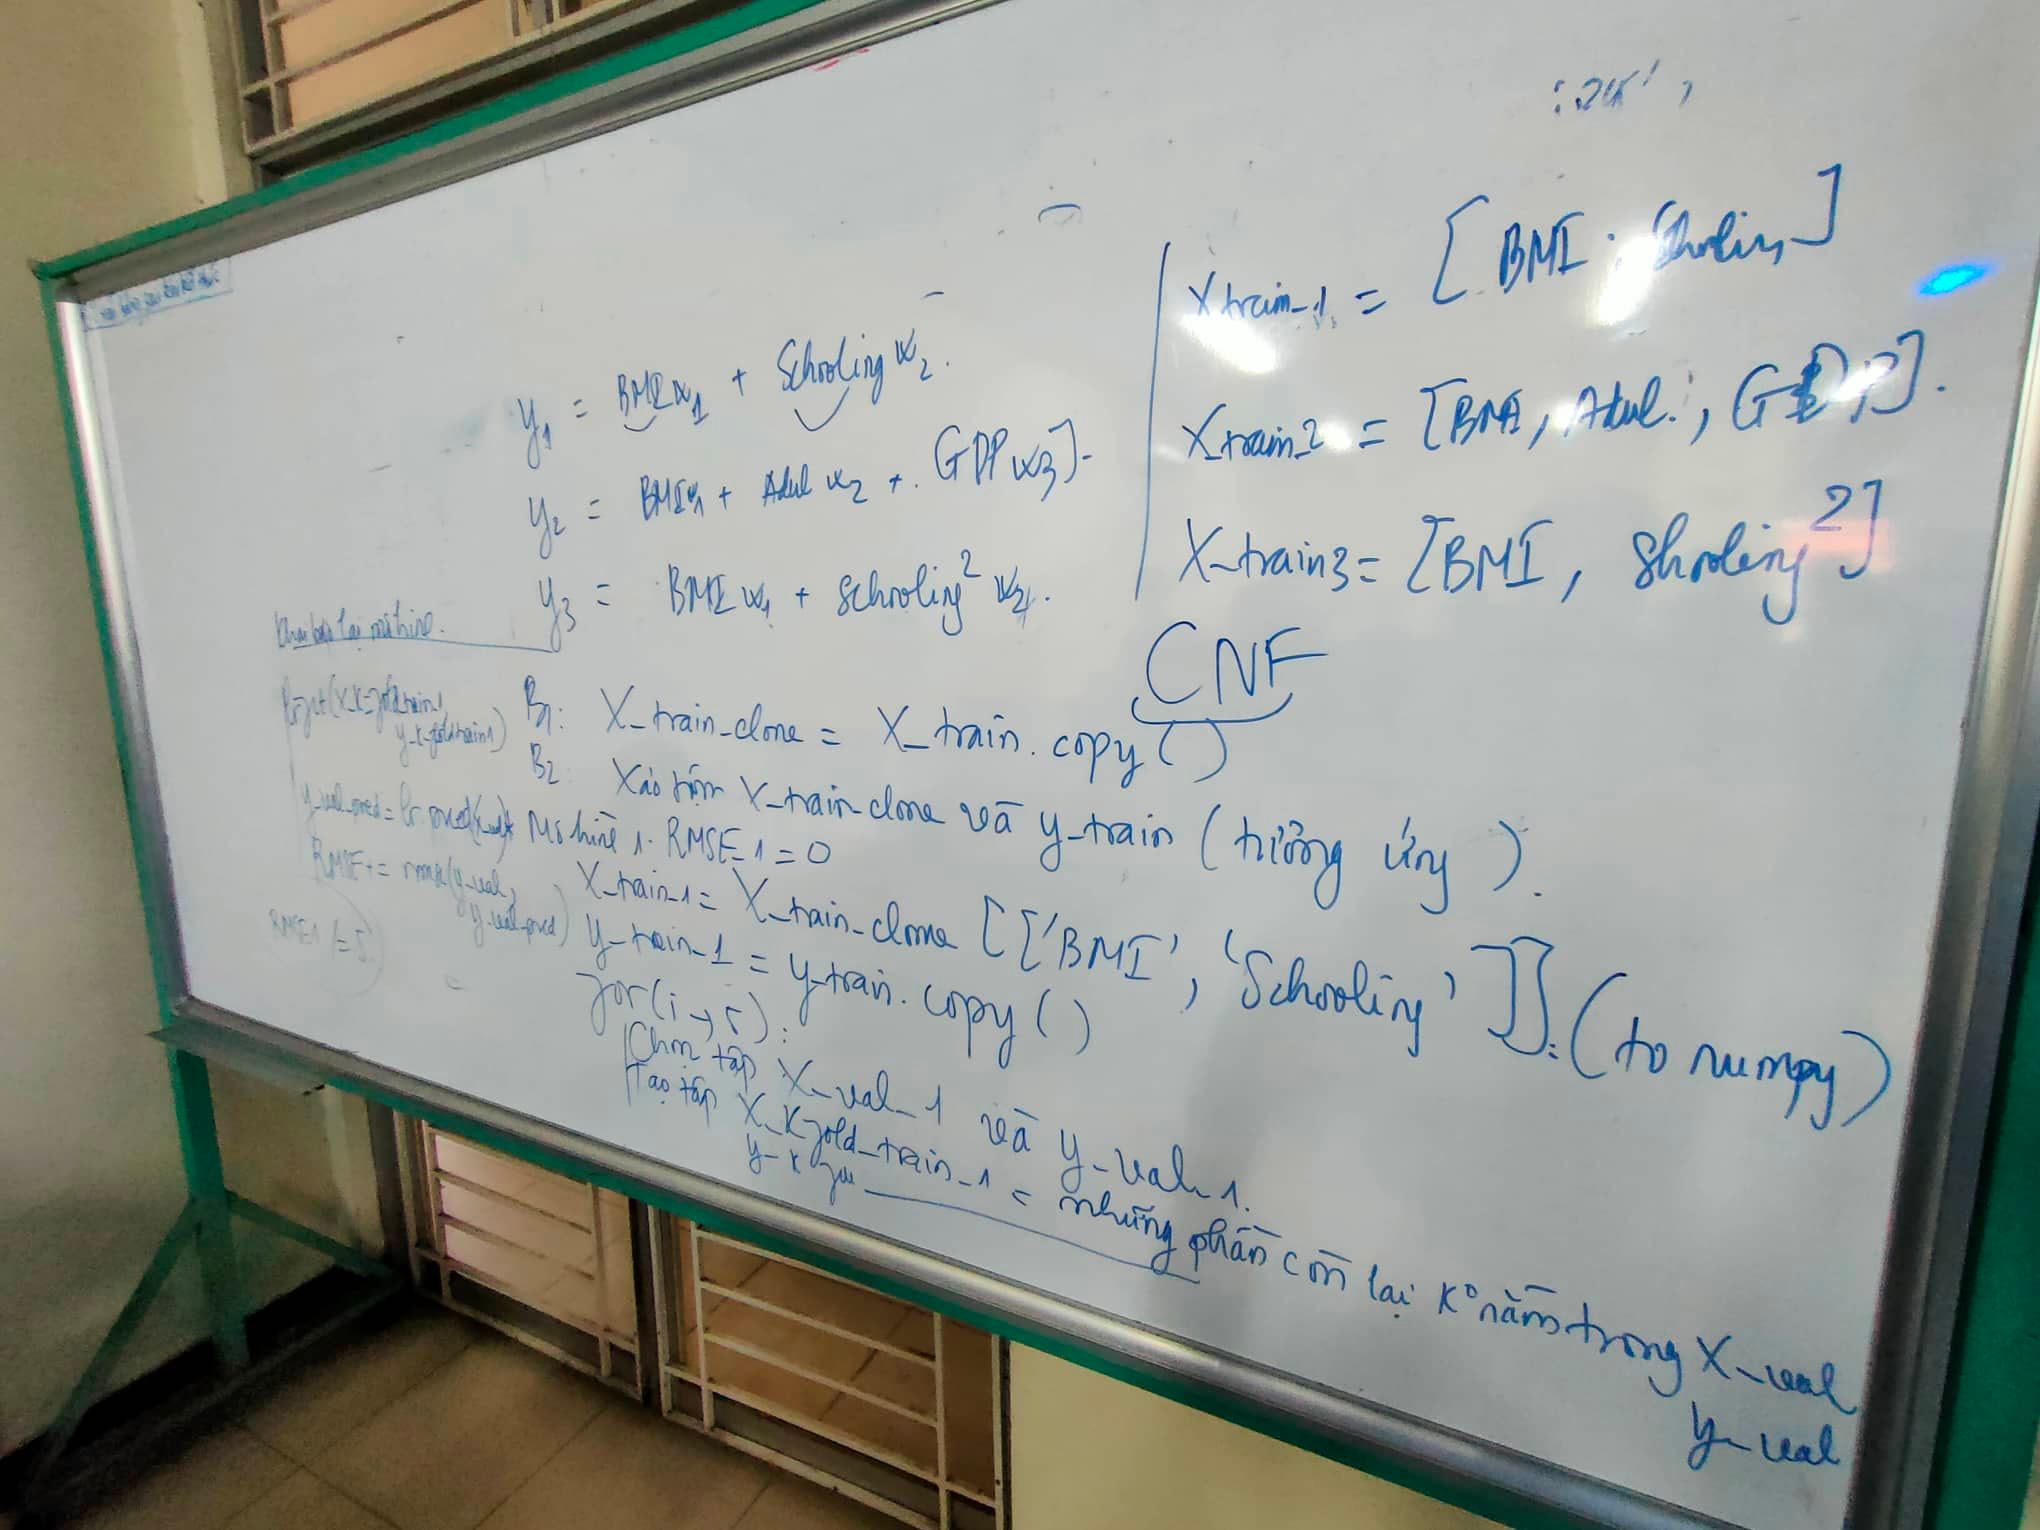 y₁ = BMI w₁ + Schooling w₂.
y₂ = BMI w₁ + Adul w₂ + GDP w₃].
y₃ = BMI w₁ + Schooling² w₂.
X train_1 = [BMI, Schooling]
X_train_2 = [BMI, Adul., GDP].
X_train3 = [BMI, Shooling²]
CNF
Khai báo lại mô hình.
lr.fit(X_K-fold train1,
y_K-fold train1)
y_val_pred = lr.pred(x_val)
RMSE += rmse(y_val,
y_val_pred)
RMSE1 /= 5
B₁: X_train_clone = X_train.copy()
B₂: Xáo trộn X_train_clone và y_train (tương ứng).
Mô hình 1. RMSE_1 = 0
X_train_1 = X_train_clone [['BMI', 'Schooling']]. (to numpy)
y_train_1 = y_train.copy()
for (i → 5):
Chọn tập X_val_1 và y_val_1.
Tạo tập X_Kfold_train_1 = những phần còn lại K° nằm trong X_val
y_K
y_val